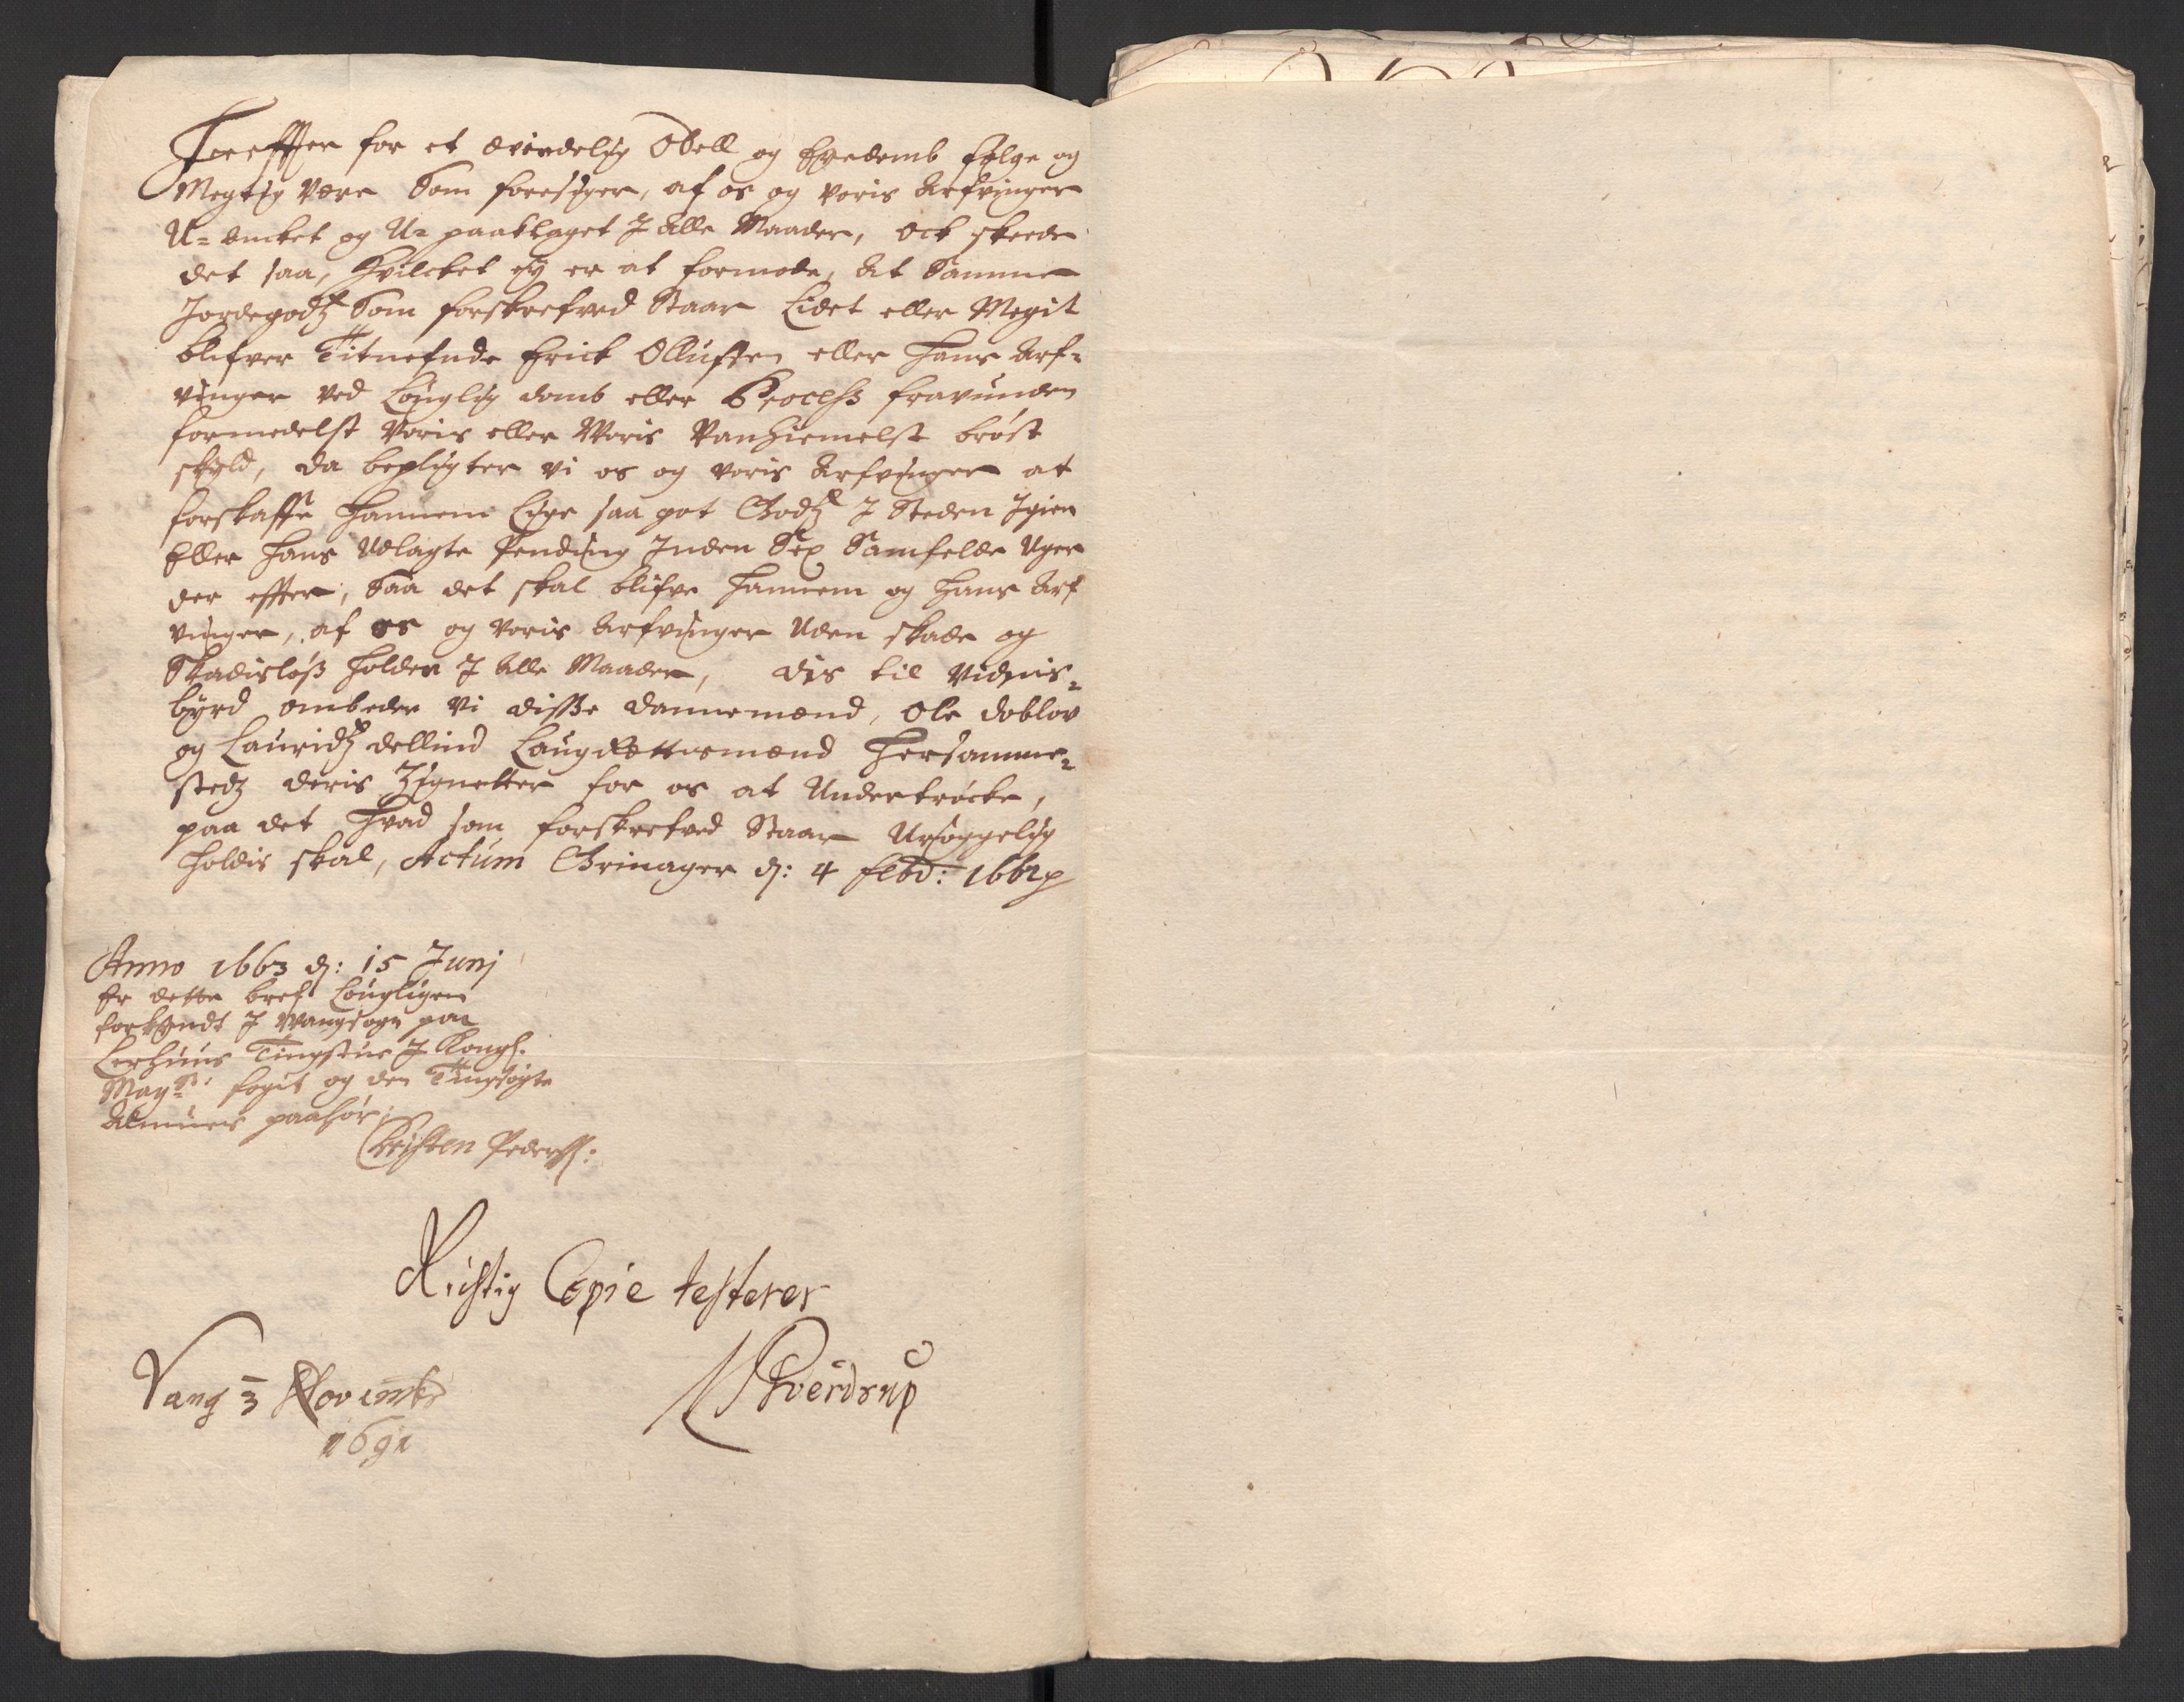 Herefter for et ævindelig Odell og Eyedomb følge og
Megtig være Som foresiger, af os og voris Arfvinger
U= ancket og U= paaklaget J alle Maader, ock skeede
det saa, Hvilcket ey er at formode, At Samme
Jordegodtz Som forskrefved Staar Lidet eller Megit
blifver Titnefnde Erick Olluffsen eller Hans Arf=
vinger ved Louglig domb eller Process fravunden
formedelst voris eller Woris Vanhiemelst brøst
skyld, da bepligter vi os og voris Arfvinger at
forskaffe Hannem Lige saa got Godtz J Steden Jgien
Eller Hans Udlagte Pending Jnden Sex Samfelde Uger
der effter, Saa det skal blifve Hannem og Hans Arf
vinger, af os og voris Arfvinger Uden skade og
Skadisløs Holden J alle Maader, dis til Vidnis=
byrd ombeder vi disse dannemænd, Ole Doblov
og Lauridtz Dellind Laug Rættismænd Hersamme=
stedz deris Zigneter for os at Undertrøcke,
paa det Hvad som forskrefved Staar Uryggelig
Holdis skal, Actum Grinager d: 4 Febr: 1662
Anno 1663 d: 15 Junj
Er dette bref Lougligen
forkyndt J Wangsogn paa
Lerhuus Tingstue J Kongl:
Mayts: fogit og den Tingsøgte
Almues paahør;
Christen Pederss:
Richtig Copie testerer
Vang 3 Novembr
1691
N Sverdrup